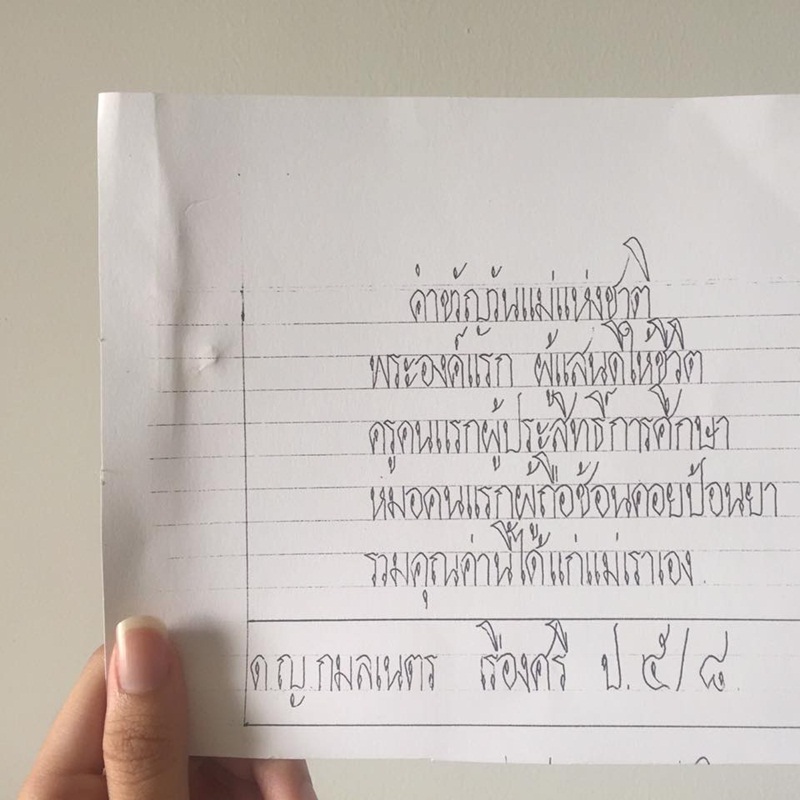 คำขวัญวันแม่แห่งชาติ
พระองค์แรก ผู้แสนดีให้ชีวิต
ครูคนแรกผู้ประสิทธิ์การศึกษา
หมอคนแรกผู้ถือช้อนคอยป้อนยา
รวมคุณค่านี้ได้แก่แม่เราเอง
ด.ญ.กมลเนตร เรืองศรี ป.๕/๘